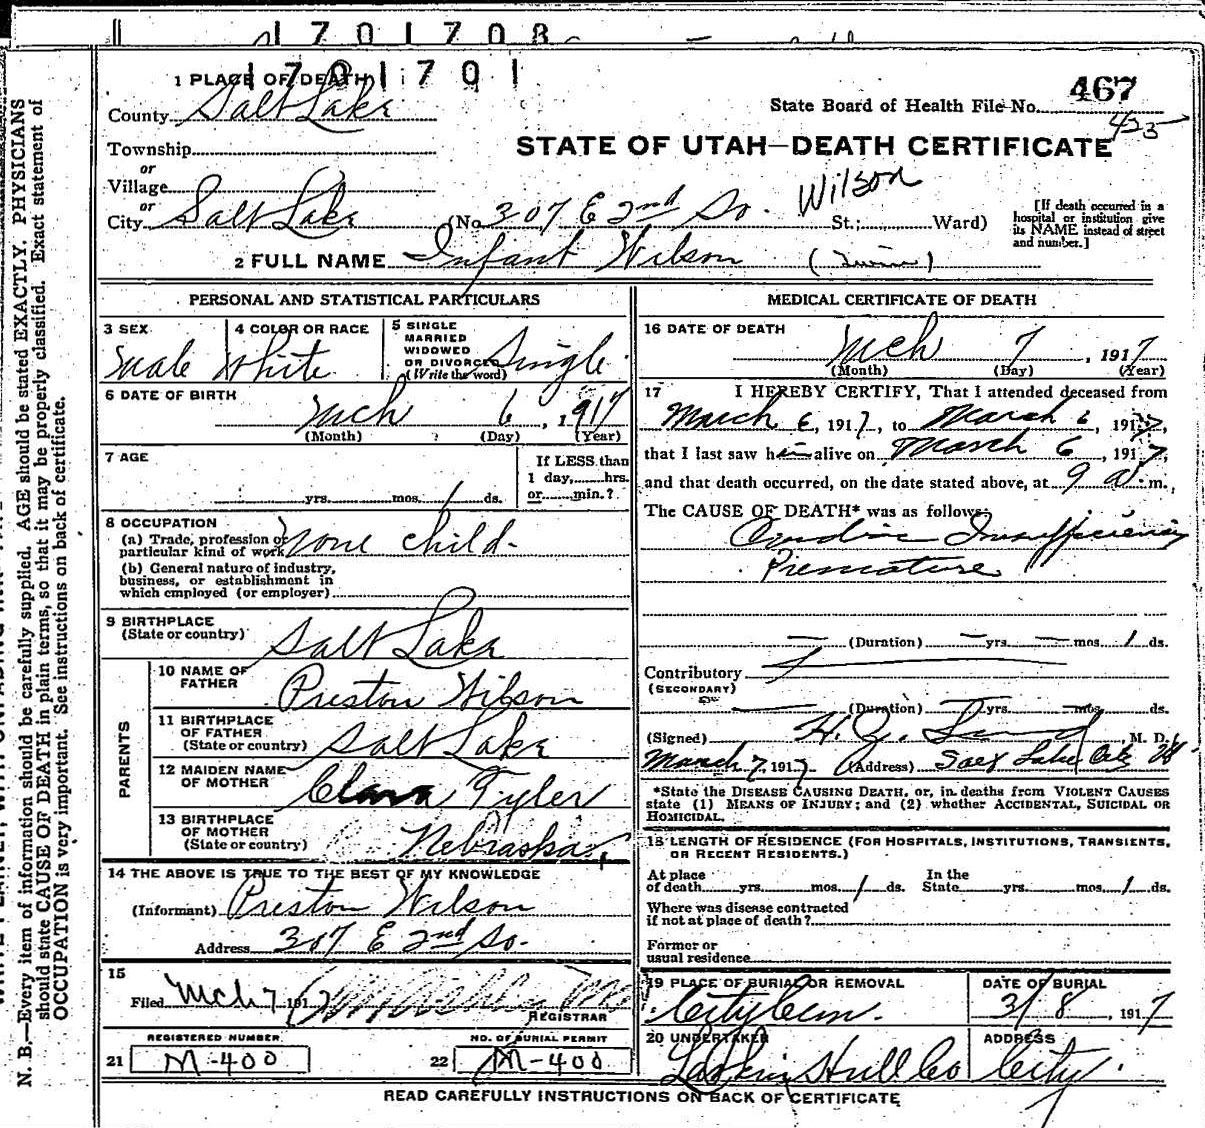 1701708
1701701
1 PLACE OF DEATH
County Salt Lake
State Board of Health File No. 467
Township
or
Village
or
City Salt Lake
STATE OF UTAH—DEATH CERTIFICATE
Wilson
(No. 307 E 2nd So. St.; Ward)
[If death occurred in a
hospital or institution give
its NAME instead of street
and number.]
2 FULL NAME Infant Wilson (Twin)
PERSONAL AND STATISTICAL PARTICULARS
3 SEX
Male
4 COLOR OR RACE
White
5 SINGLE
MARRIED
WIDOWED
OR DIVORCED
(Write the word)
Single
6 DATE OF BIRTH
Mch 6, 1917
(Month) (Day) (Year)
7 AGE
yrs. mos. 1 ds.
If LESS than
1 day, hrs.
or min.?
8 OCCUPATION
(a) Trade, profession or
particular kind of work none child.
(b) General nature of industry,
business, or establishment in
which employed (or employer)
9 BIRTHPLACE
(State or country) Salt Lake
PARENTS
10 NAME OF
FATHER Preston Wilson
11 BIRTHPLACE
OF FATHER
(State or country) Salt Lake
12 MAIDEN NAME
OF MOTHER Clara Tyler
13 BIRTHPLACE
OF MOTHER
(State or country) Nebraska
14 THE ABOVE IS TRUE TO THE BEST OF MY KNOWLEDGE
(Informant) Preston Wilson
Address 307 E 2nd So.
15
Filed Mch 7 1917
REGISTRAR
REGISTERED NUMBER
21 M-400
NO. OF BURIAL PERMIT
22 M-400
MEDICAL CERTIFICATE OF DEATH
16 DATE OF DEATH
Mch 7, 1917
(Month) (Day) (Year)
17 I HEREBY CERTIFY, That I attended deceased from
March 6, 1917, to March 6, 1917,
that I last saw him alive on March 6, 1917,
and that death occurred, on the date stated above, at 9 a. m.,
The CAUSE OF DEATH* was as follows:
Cardiac Insufficiency
Premature
(Duration) yrs. mos. 1 ds.
Contributory
(SECONDARY)
(Duration) yrs. mos. ds.
(Signed) H. , M. D.
March 7, 1917 (Address) Salt Lake City
*State the DISEASE CAUSING DEATH, or, in deaths from VIOLENT CAUSES
state (1) MEANS OF INJURY; and (2) whether ACCIDENTAL, SUICIDAL OR
HOMICIDAL.
18 LENGTH OF RESIDENCE (FOR HOSPITALS, INSTITUTIONS, TRANSIENTS,
OR RECENT RESIDENTS.)
At place
of death yrs. mos. 1 ds.
In the
State yrs. mos. 1 ds.
Where was disease contracted
if not at place of death?
Former or
usual residence
19 PLACE OF BURIAL OR REMOVAL
City Cem.
DATE OF BURIAL
3/8, 1917
20 UNDERTAKER
Larkin Hull Co
ADDRESS
City.
READ CAREFULLY INSTRUCTIONS ON BACK OF CERTIFICATE
N. B.—Every item of information should be carefully supplied. AGE should be stated EXACTLY. PHYSICIANS
should state CAUSE OF DEATH in plain terms, so that it may be properly classified. Exact statement of
OCCUPATION is very important. See instructions on back of certificate.